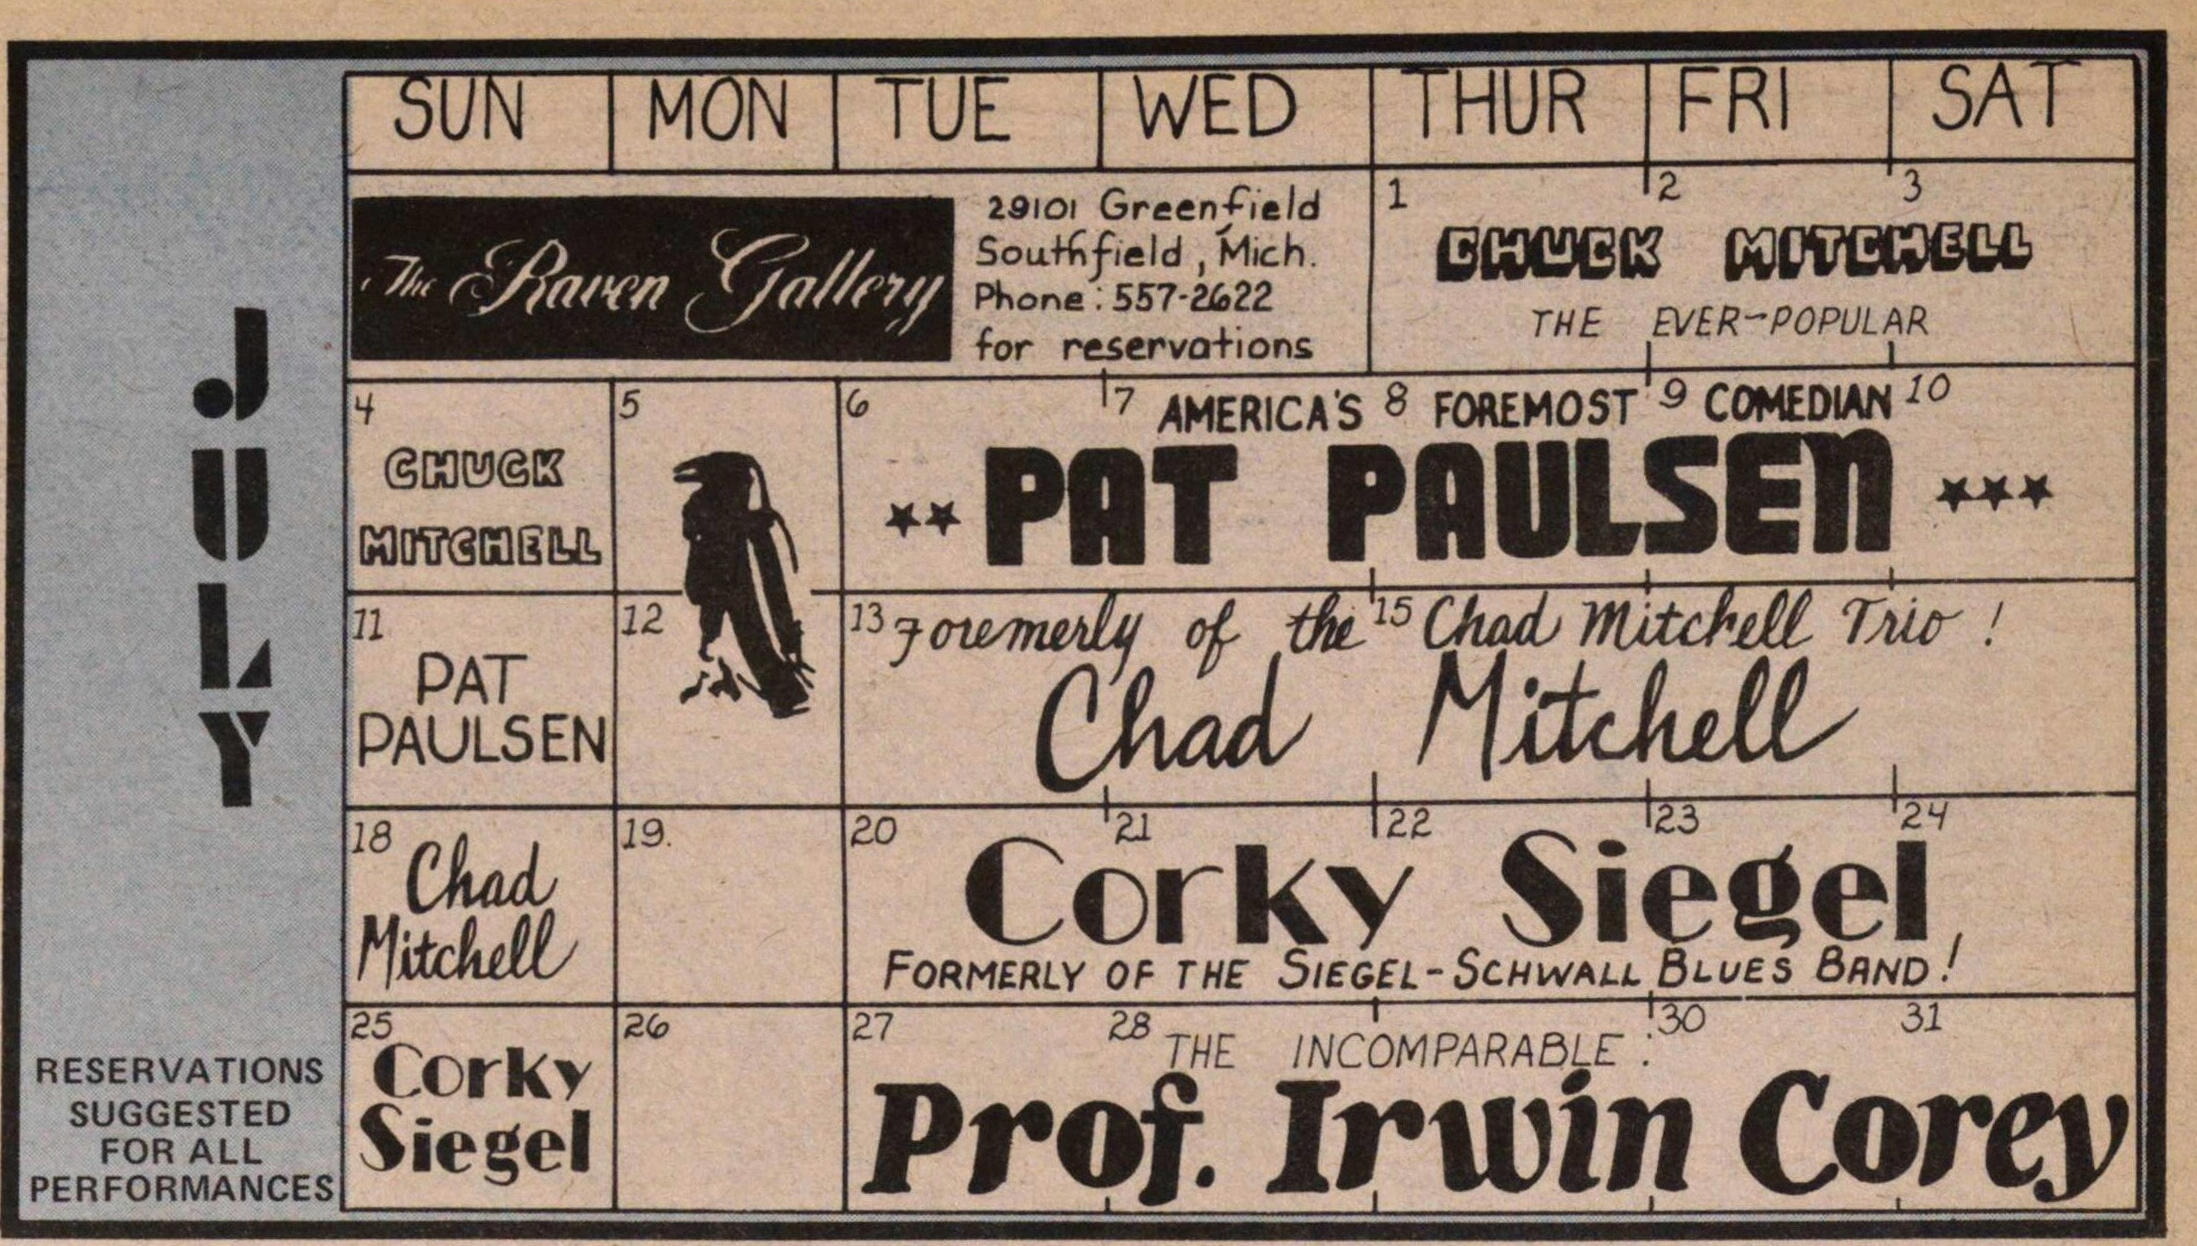 JULY
RESERVATIONS
SUGGESTED
FOR ALL
PERFORMANCES
SUN MON TUE WED THUR FRI SAT
The Raven Gallery
29101 Greenfield
Southfield, Mich.
Phone: 557-2622
for reservations
1 2 3
CHUCK MITCHELL
THE EVER-POPULAR
4
CHUCK
MITCHELL
5
6 7 AMERICA'S 8 FOREMOST 9 COMEDIAN 10
** PAT PAULSEN ***
11
PAT
PAULSEN
12
13 Foremerly of the 15 Chad Mitchell Trio!
Chad Mitchell
18
Chad
Mitchell
19.
20 21 22 23 24
Corky Siegel
FORMERLY OF THE SIEGEL-SCHWALL BLUES BAND!
25
Corky
Siegel
26
27 28 THE INCOMPARABLE: 30 31
Prof. Irwin Corey